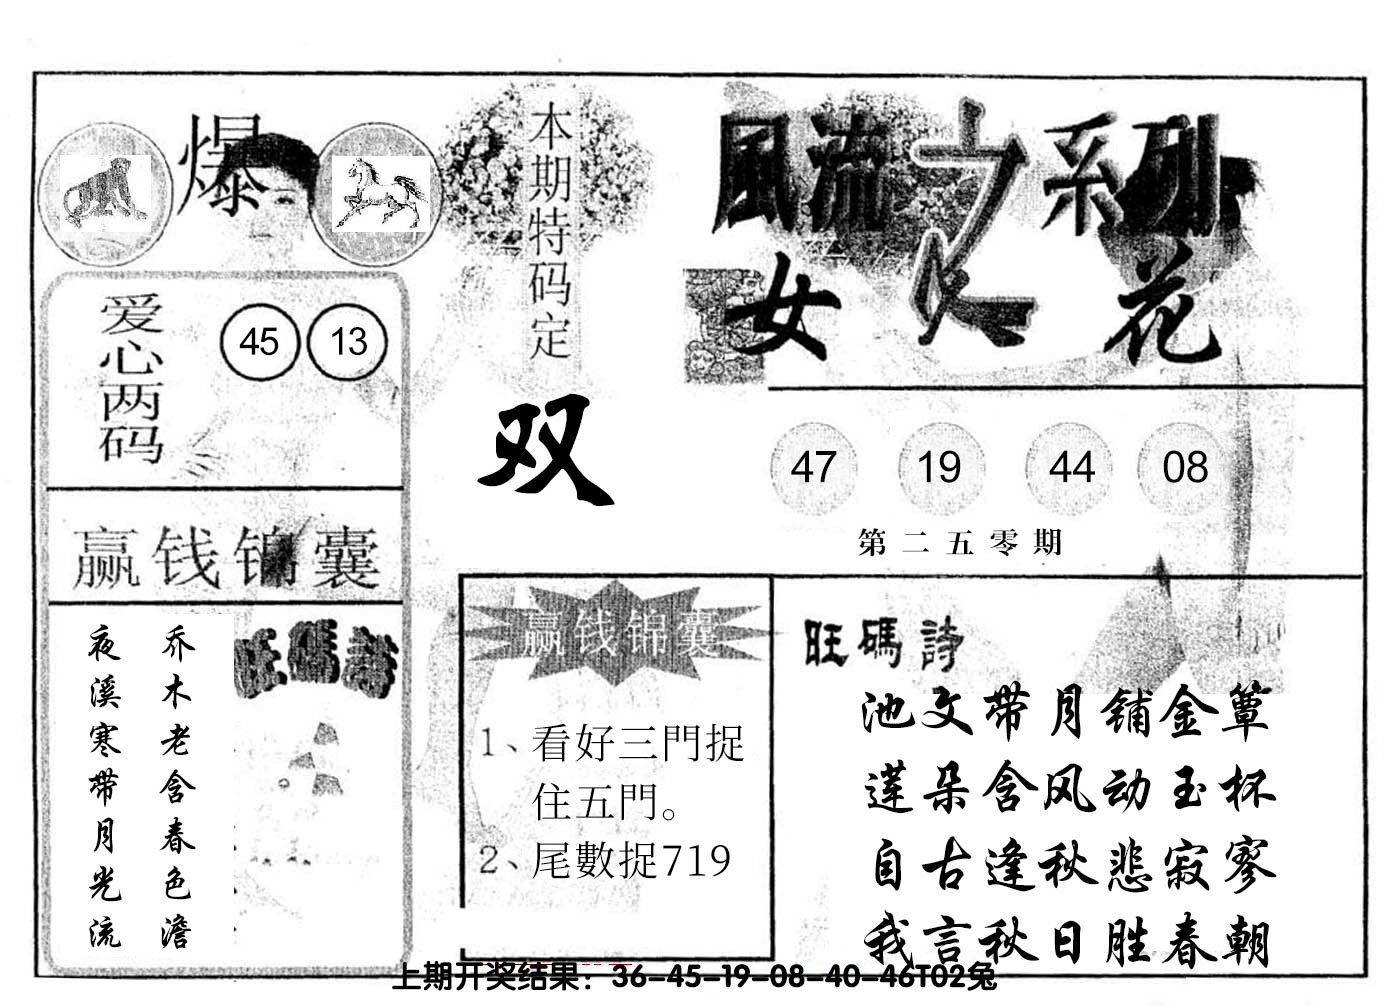 爆
本期特码定
双
風流之系列
女人花
爱心两码
45 13
47 19 44 08
第二五零期
赢钱锦囊
乔木老含春色澹
夜溪寒带月光流
旺碼詩
赢钱锦囊
1、看好三門捉
住五門。
2、尾數捉719
旺碼詩
池文带月铺金簟
莲朵含风动玉杯
自古逢秋悲寂寥
我言秋日胜春朝
上期开奖结果：36-45-19-08-40-46T02兔